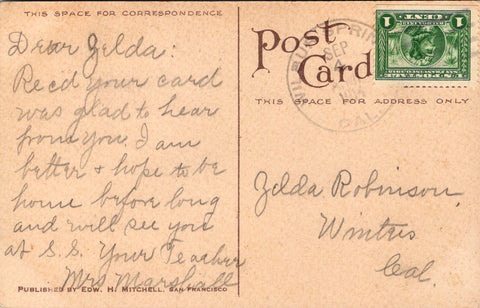 THIS SPACE FOR CORRESPONDENCE
Dear Zelda:
Rec'd your card
was glad to hear
from you. I am
better & hope to be
home before long
and will see you
at S.S. Your Teacher
Mrs Marshall
PUBLISHED BY EDW. H. MITCHELL, SAN FRANCISCO
Post
Card
THIS SPACE FOR ADDRESS ONLY
WILBUR SPRINGS
SEP
4
CAL.
1 CENT 1
Zelda Robinson
Winters
Cal.